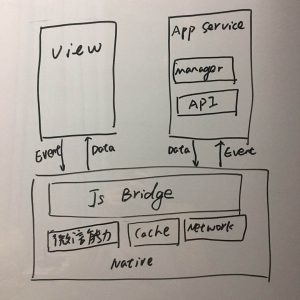 View
App Service
manager
API
Event
Data
Data
Event
Js Bridge
微信能力
Cache
Network
Native